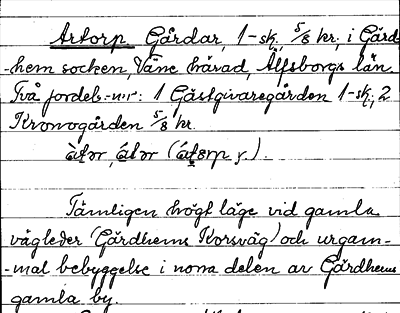 Artorp Gårdar, 1-sk., 5/8 kr., i Gärd-
-hem socken, Väne härad, Älfsborgs län.
Två jordeb.-n:r: 1 Gästgivaregården 1-sk., 2
Kronogården 5/8 kr.
Tämligen högt läge vid gamla
vägleder (Gärdhems Korsväg) och urgam-
-mal bebyggelse i norra delen av Gärdhems
gamla by.